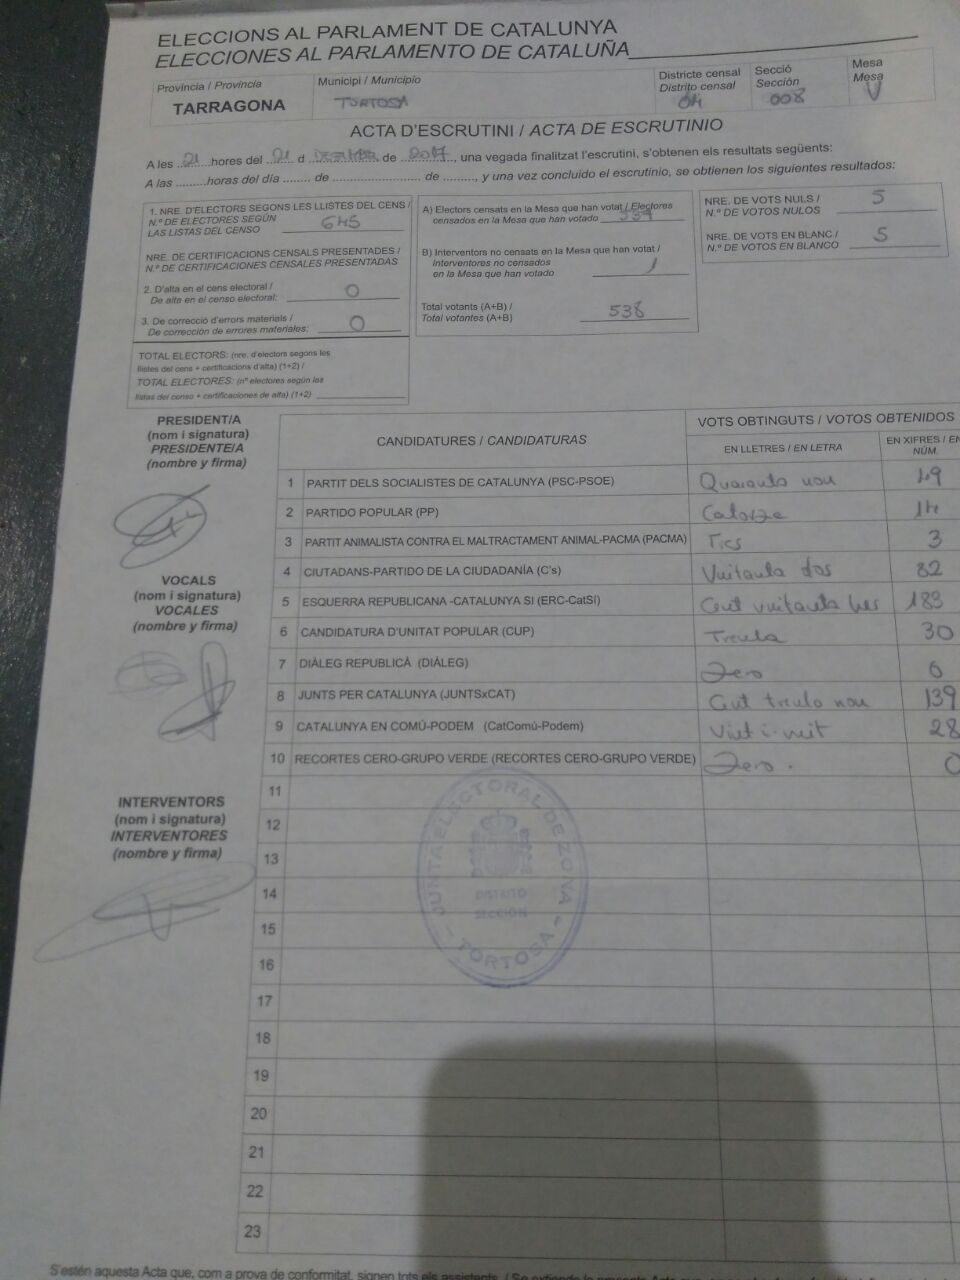 ELECCIONS AL PARLAMENT DE CATALUNYA
ELECCIONES AL PARLAMENTO DE CATALUÑA
Província / Provincia
TARRAGONA
Municipi / Municipio
TORTOSA
Districte censal
Distrito censal
04
Secció
Sección
008
Mesa
Mesa
U
ACTA D'ESCRUTINI / ACTA DE ESCRUTINIO
A les 21 hores del 21 d de 2017, una vegada finalitzat l'escrutini, s'obtenen els resultats següents:
A las .........horas del día ........ de ......................... de ........., y una vez concluido el escrutinio, se obtienen los siguientes resultados:
1. NRE. D'ELECTORS SEGONS LES LLISTES DEL CENS /
N.º DE ELECTORES SEGÚN
LAS LISTAS DEL CENSO 645
NRE. DE CERTIFICACIONS CENSALS PRESENTADES /
N.º DE CERTIFICACIONES CENSALES PRESENTADAS
2. D'alta en el cens electoral /
De alta en el censo electoral: 0
3. De correcció d'errors materials /
De corrección de errores materiales: 0
TOTAL ELECTORS: (nre. d'electors segons les
llistes del cens + certificacions d'alta) (1+2) /
TOTAL ELECTORES: (nº electores según las
listas del censo + certificaciones de alta) (1+2)
A) Electors censats en la Mesa que han votat / Electores
censados en la Mesa que han votado 537
B) Interventors no censats en la Mesa que han votat /
Interventores no censados
en la Mesa que han votado 1
Total votants (A+B) /
Total votantes (A+B) 538
NRE. DE VOTS NULS /
N.º DE VOTOS NULOS 5
NRE. DE VOTS EN BLANC /
N.º DE VOTOS EN BLANCO 5
PRESIDENT/A
(nom i signatura)
PRESIDENTE/A
(nombre y firma)
VOCALS
(nom i signatura)
VOCALES
(nombre y firma)
INTERVENTORS
(nom i signatura)
INTERVENTORES
(nombre y firma)
CANDIDATURES / CANDIDATURAS
VOTS OBTINGUTS / VOTOS OBTENIDOS
EN LLETRES / EN LETRA
EN XIFRES / EN
NÚM.
1 PARTIT DELS SOCIALISTES DE CATALUNYA (PSC-PSOE) Quaranta nou 49
2 PARTIDO POPULAR (PP) Catorze 14
3 PARTIT ANIMALISTA CONTRA EL MALTRACTAMENT ANIMAL-PACMA (PACMA) Tres 3
4 CIUTADANS-PARTIDO DE LA CIUDADANÍA (C's) Vuitanta dos 82
5 ESQUERRA REPUBLICANA -CATALUNYA SI (ERC-CatSí) Cent vuitanta tres 183
6 CANDIDATURA D'UNITAT POPULAR (CUP) Trenta 30
7 DIÀLEG REPUBLICÀ (DIÀLEG) Zero 0
8 JUNTS PER CATALUNYA (JUNTSxCAT) Cent trenta nou 139
9 CATALUNYA EN COMÚ-PODEM (CatComú-Podem) Vint i vuit 28
10 RECORTES CERO-GRUPO VERDE (RECORTES CERO-GRUPO VERDE) Zero. 0
11
12
13
14
15
16
17
18
19
20
21
22
23
JUNTA ELECTORAL DE ZONA
DISTRITO
SECCION
- TORTOSA -
S'estén aquesta Acta que, com a prova de conformitat, signen tots els assistents. / Se extiende la presente Acta